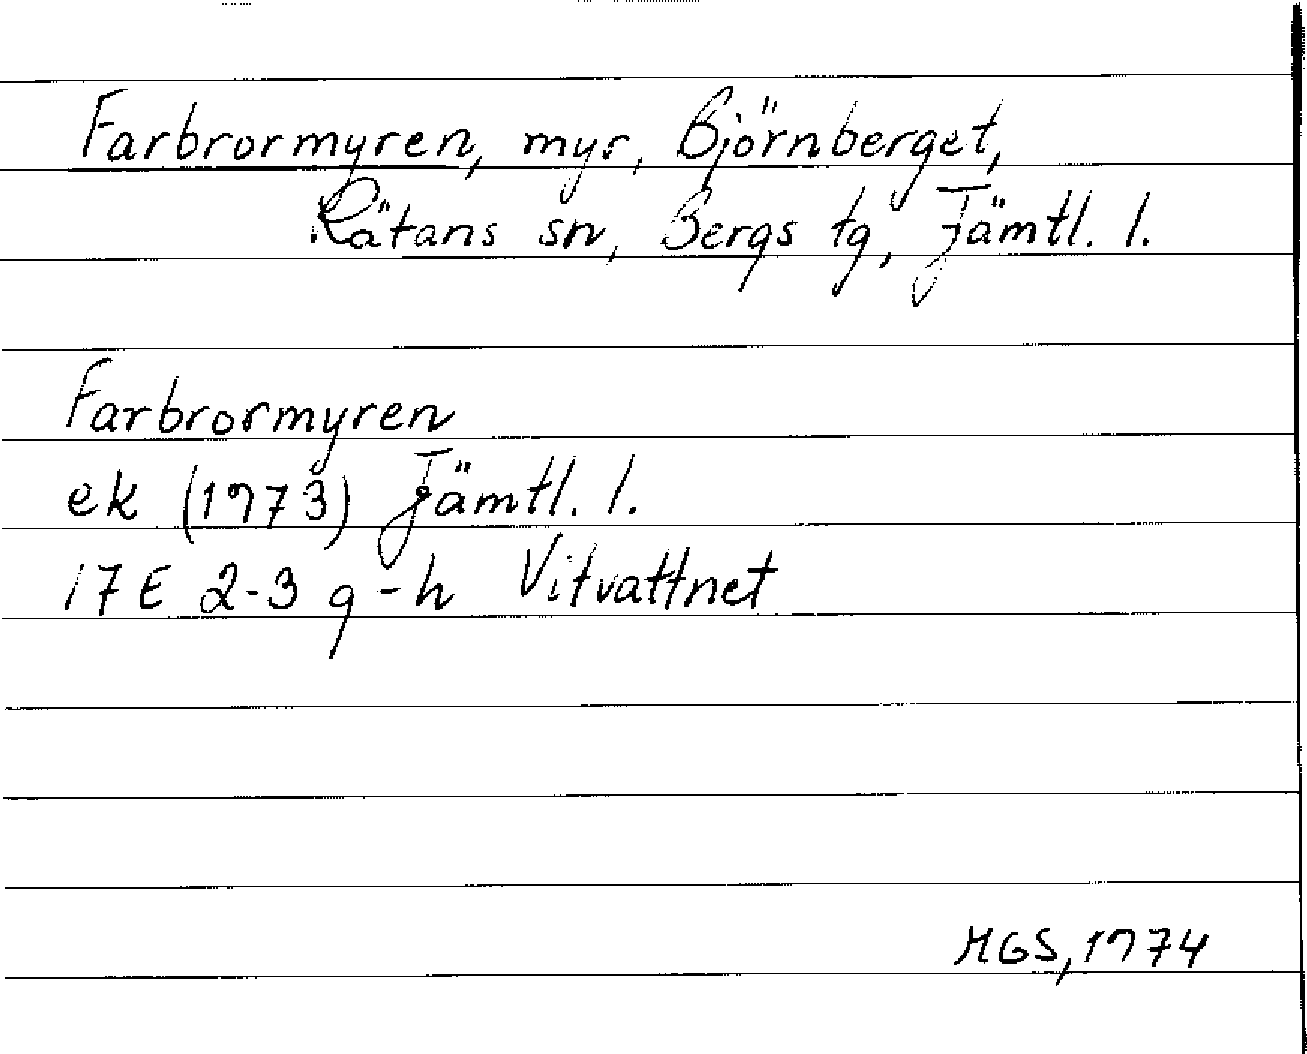 Farbrormyren, myr, Björnberget,
Rätans sn, Bergs tg, Jämtl. l.
Farbrormyren
ek (1973) Jämtl. l.
17E 2-3 g-h Vitvattnet
MGS, 1974